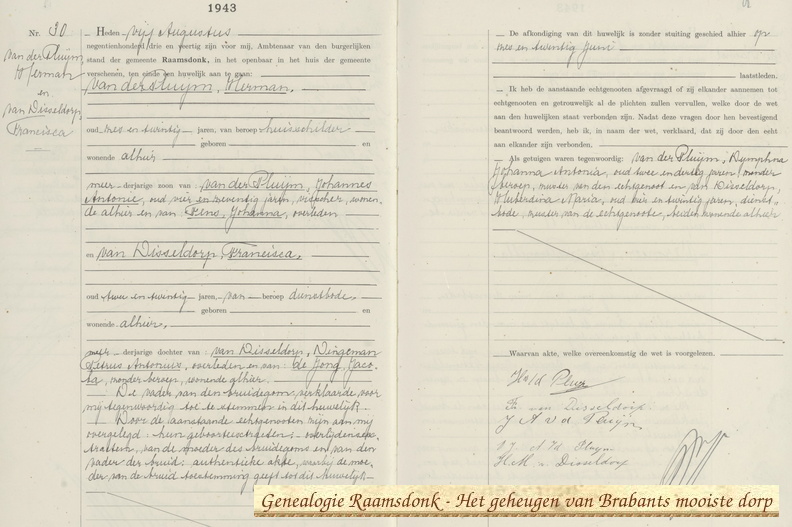 1943
Nr. 30
van der Pluijm,
Herman
en
van Disseldorp,
Francisca
Heden vijf Augustus
negentienhonderd drie en veertig zijn voor mij, Ambtenaar van den burgerlijken
stand der gemeente Raamsdonk, in het openbaar in het huis der gemeente
verschenen, ten einde een huwelijk aan te gaan:
van der Pluijm, Herman,
oud zes en twintig jaren, van beroep huisschilder
geboren en
wonende alhier
meer-derjarige zoon van van der Pluijm, Johannes
Antonie, oud vier en zeventig jaren, visscher, wonen-
de alhier en van Johanna, overleden
en van Disseldorp, Francisca,
oud twee en twintig jaren, van beroep dienstbode,
geboren en
wonende alhier,
meer-derjarige dochter van: van Disseldorp, Dingeman
Petrus Antonius, overleden en van de Jong, Jaco-
ba, zonder beroep, wonende alhier.
De vader van den bruidegom verklaarde voor
mij tegenwoordig toe te stemmen in dit huwelijk.
Door de aanstaande echtgenooten zijn aan mij
overgelegd: hun geboorteuittreksels; overlijdensex-
tracten van de moeder des bruidegoms en van den
vader der bruid; authentieke akte, waarbij de moe-
der van de bruid toestemming geeft tot dit huwelijk.
De afkondiging van dit huwelijk is zonder stuiting geschied alhier op
zes en twintig Juni
laatstleden.
Ik heb de aanstaande echtgenooten afgevraagd of zij elkander aannemen tot
echtgenooten en getrouwelijk al de plichten zullen vervullen, welke door de wet
aan den huwelijken staat verbonden zijn. Nadat deze vragen door hen bevestigend
beantwoord werden, heb ik, in naam der wet, verklaard, dat zij door den echt
aan elkander zijn verbonden.
Als getuigen waren tegenwoordig: van der Pluijm, Dymphna
Johanna Antonia, oud twee en dertig jaren, zonder
beroep, zuster van den echtgenoot en van Disseldorp,
Maria, oud vier en twintig jaren, dienst-
bode, zuster van de echtgenoote, beiden wonende alhier
Waarvan akte, welke overeenkomstig de wet is voorgelezen.
H v/d Pluijm
Fr. van Disseldorp.
J A v d Pluijm
v/d Pluijm
v Disseldorp
Genealogie Raamsdonk - Het geheugen van Brabants mooiste dorp